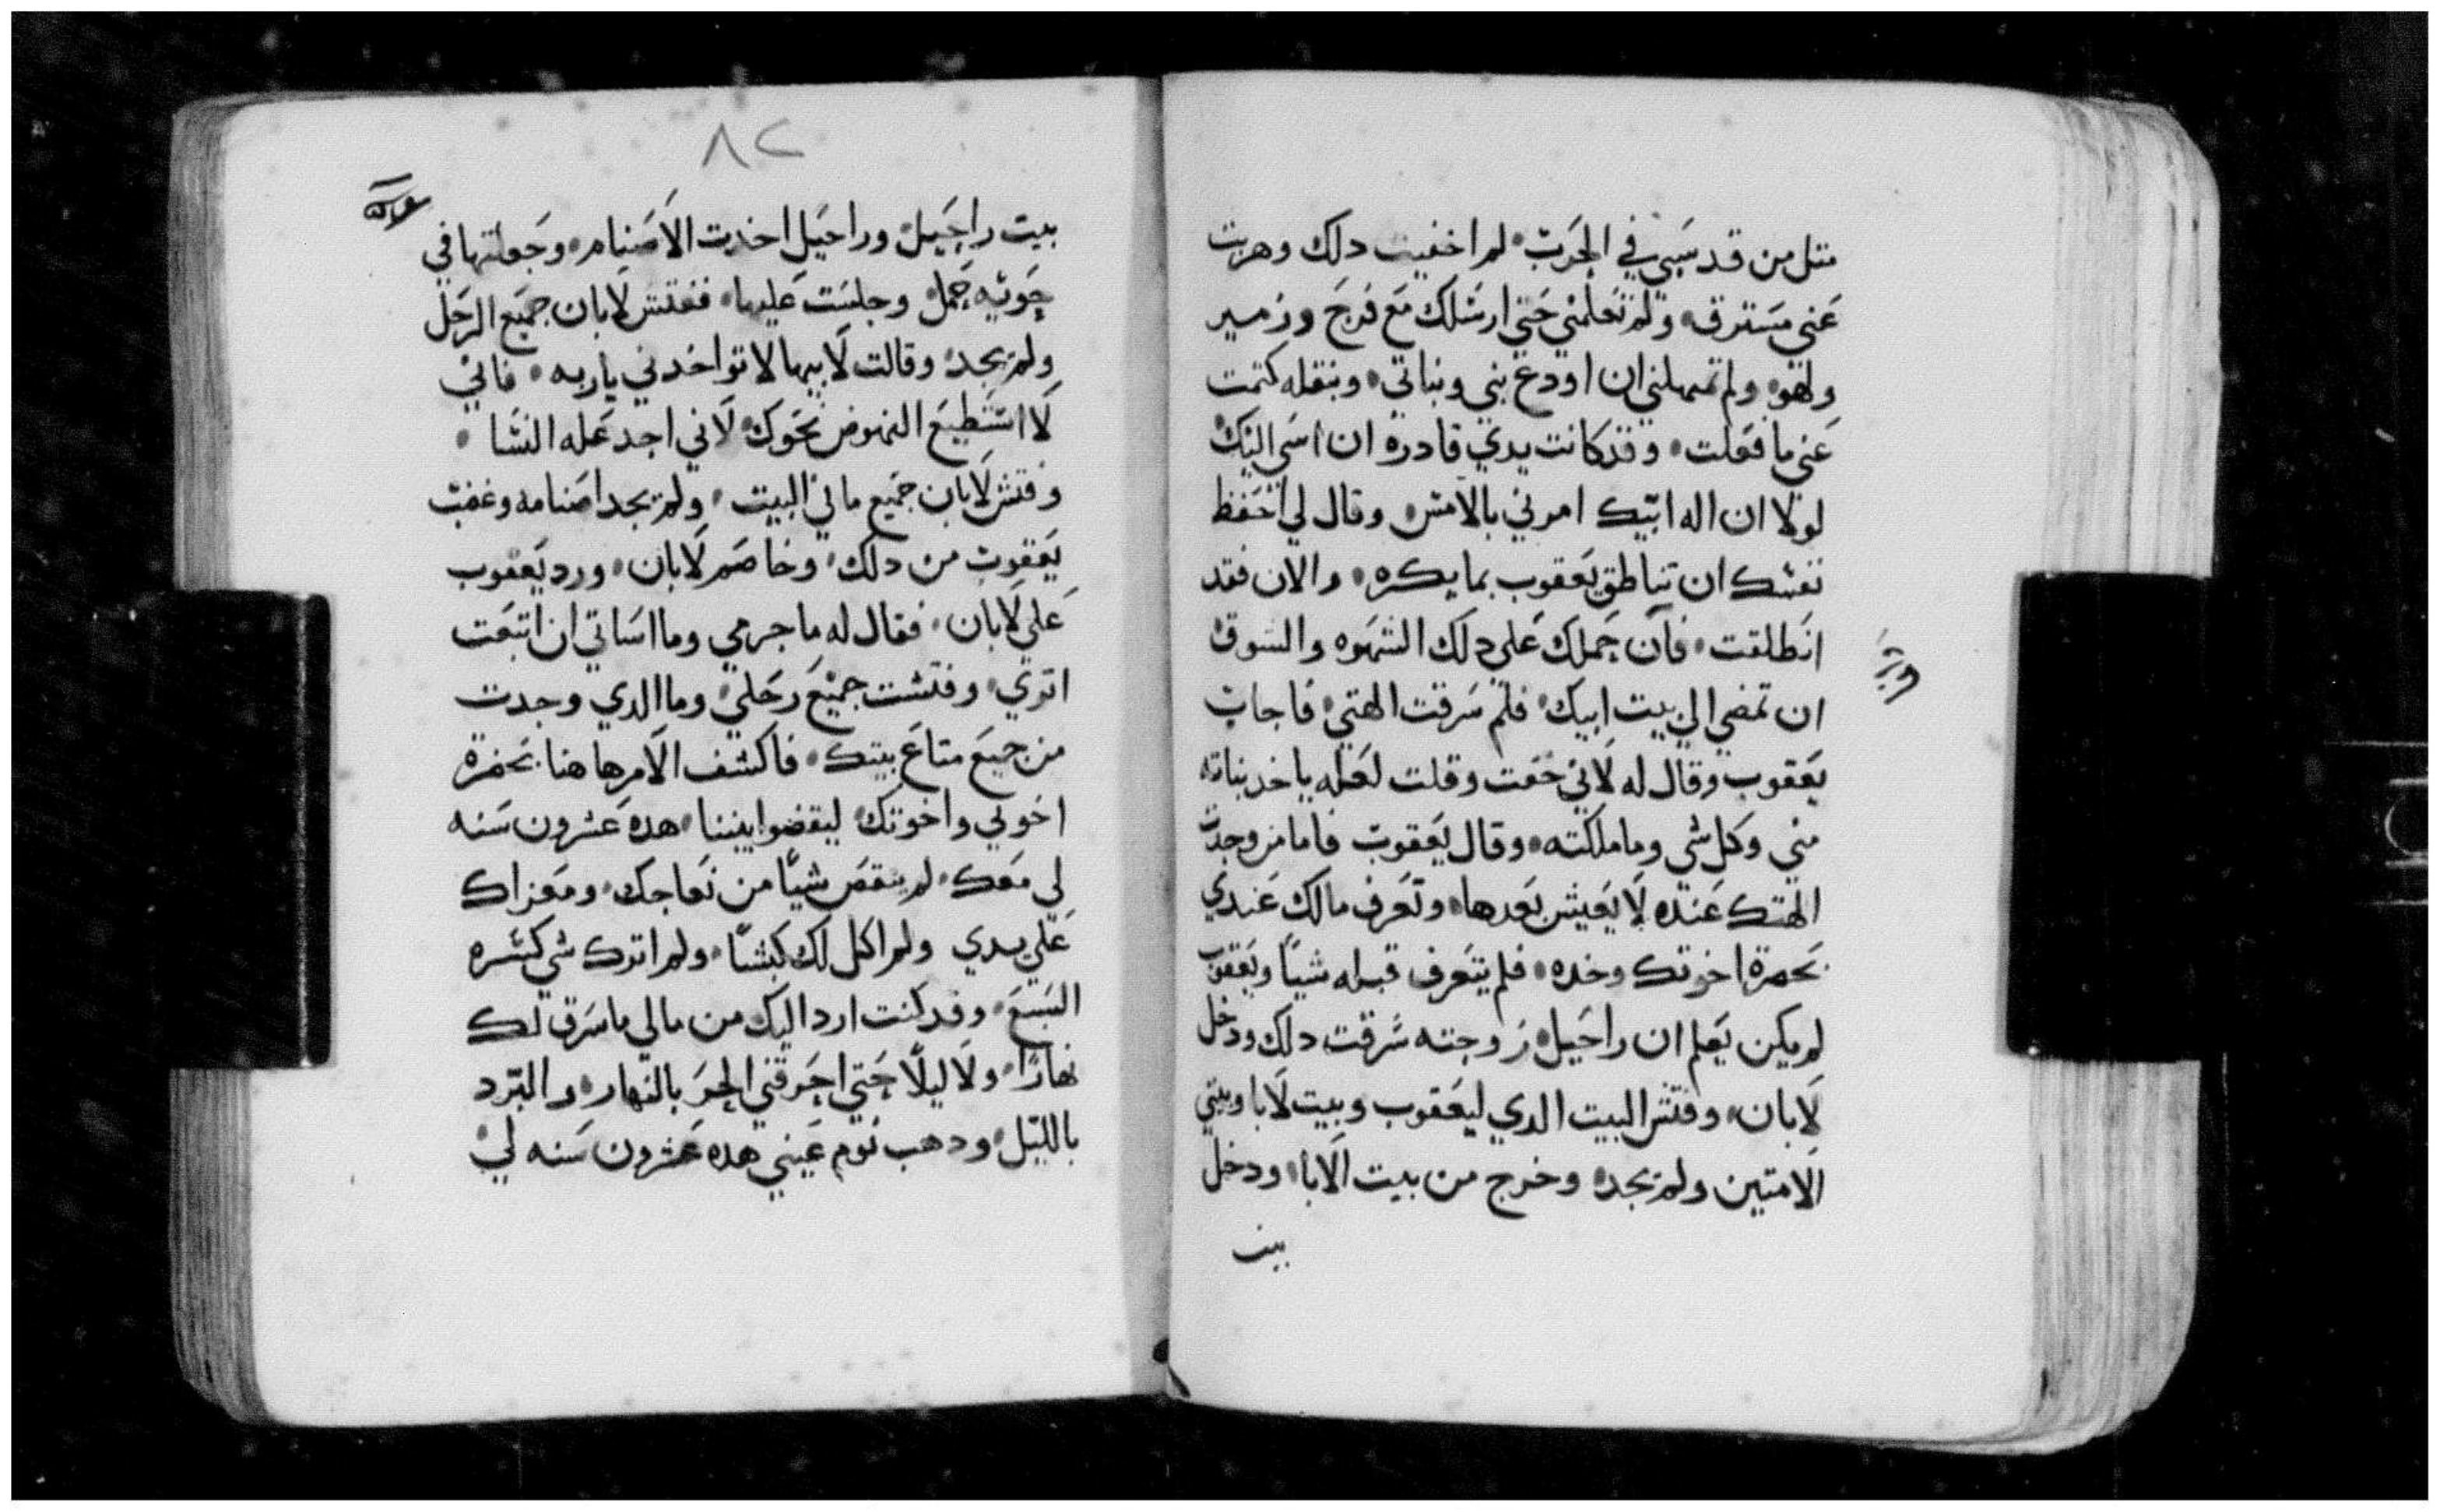 متل من قد سبي في الحرب لم اخفيت دلك وهربت
عني مسترق ولم تعلمني حتي ارسلك مع فرح وزمير
ولهو ولم تمهلني ان اودع بني وبناتي وبنقله كتمت
عني ما فعلت وقد كانت يدي قادره ان اسي اليك
لولا ان اله ابيك امرني بالامس وقال لي احفظ
نفسك ان تناطق يعقوب بما يكره والان فقد
انطلقت فان حملك علي دلك الشهوه والشوق
ان تمضي الي بيت ابيك فلم سرقت الهتي فاجاب
يعقوب وقال له لاني خفت وقلت لعله ياخد بناته
مني وكل شي وما ملكته وقال يعقوب فاما من وجدت
الهتك عنده لا يعيش بعدها وتعرف مالك عندي
بحضرة اخوتك وخده فلم يتعرف قبله شيًا ويعقوب
لم يكن يعلم ان راحيل زوجته سرقت دلك ودخل
لابان وفتش البيت الدي ليعقوب وبيت لابا وبيتي
الامتين ولم يجد وخرج من بيت الابا ودخل
بيت
٨٢
بيت راحيل وراحيل اخدت الاصنام وجعلتها في
حويه جمل وجلست عليها ففتش لابان جميع الرحل
ولم يجد وقالت لابيها لا تواخدني ياربه فاني
لا استطيع النهوض نحوك لاني اجد عله النسا
وفتش لابان جميع ما في البيت ولم يجد اصنامه وغضب
يعقوب من دلك وخاصم لابان ورد يعقوب
علي لابان فقال له ما جرمي وما اساتي ان اتبعت
اتري وفتشت جميع رحلي وما الدي وجدت
من جميع متاع بيتك فاكشف الامر هاهنا بحضرة
اخوتي واخوتك ليقضوا بيننا هده عشرون سنه
لي معك لم ينقص شيًا من نعاجك ومعزاك
علي يدي ولم اكل لك كبشًا ولم اترك شي كسره
السبع وقد كنت ارد اليك من مالي ما سرق لك
نهارًا ولا ليلًا حتي احرقني الحر بالنهار والبرد
بالليل ودهب نوم عيني هده عشرون سنه لي